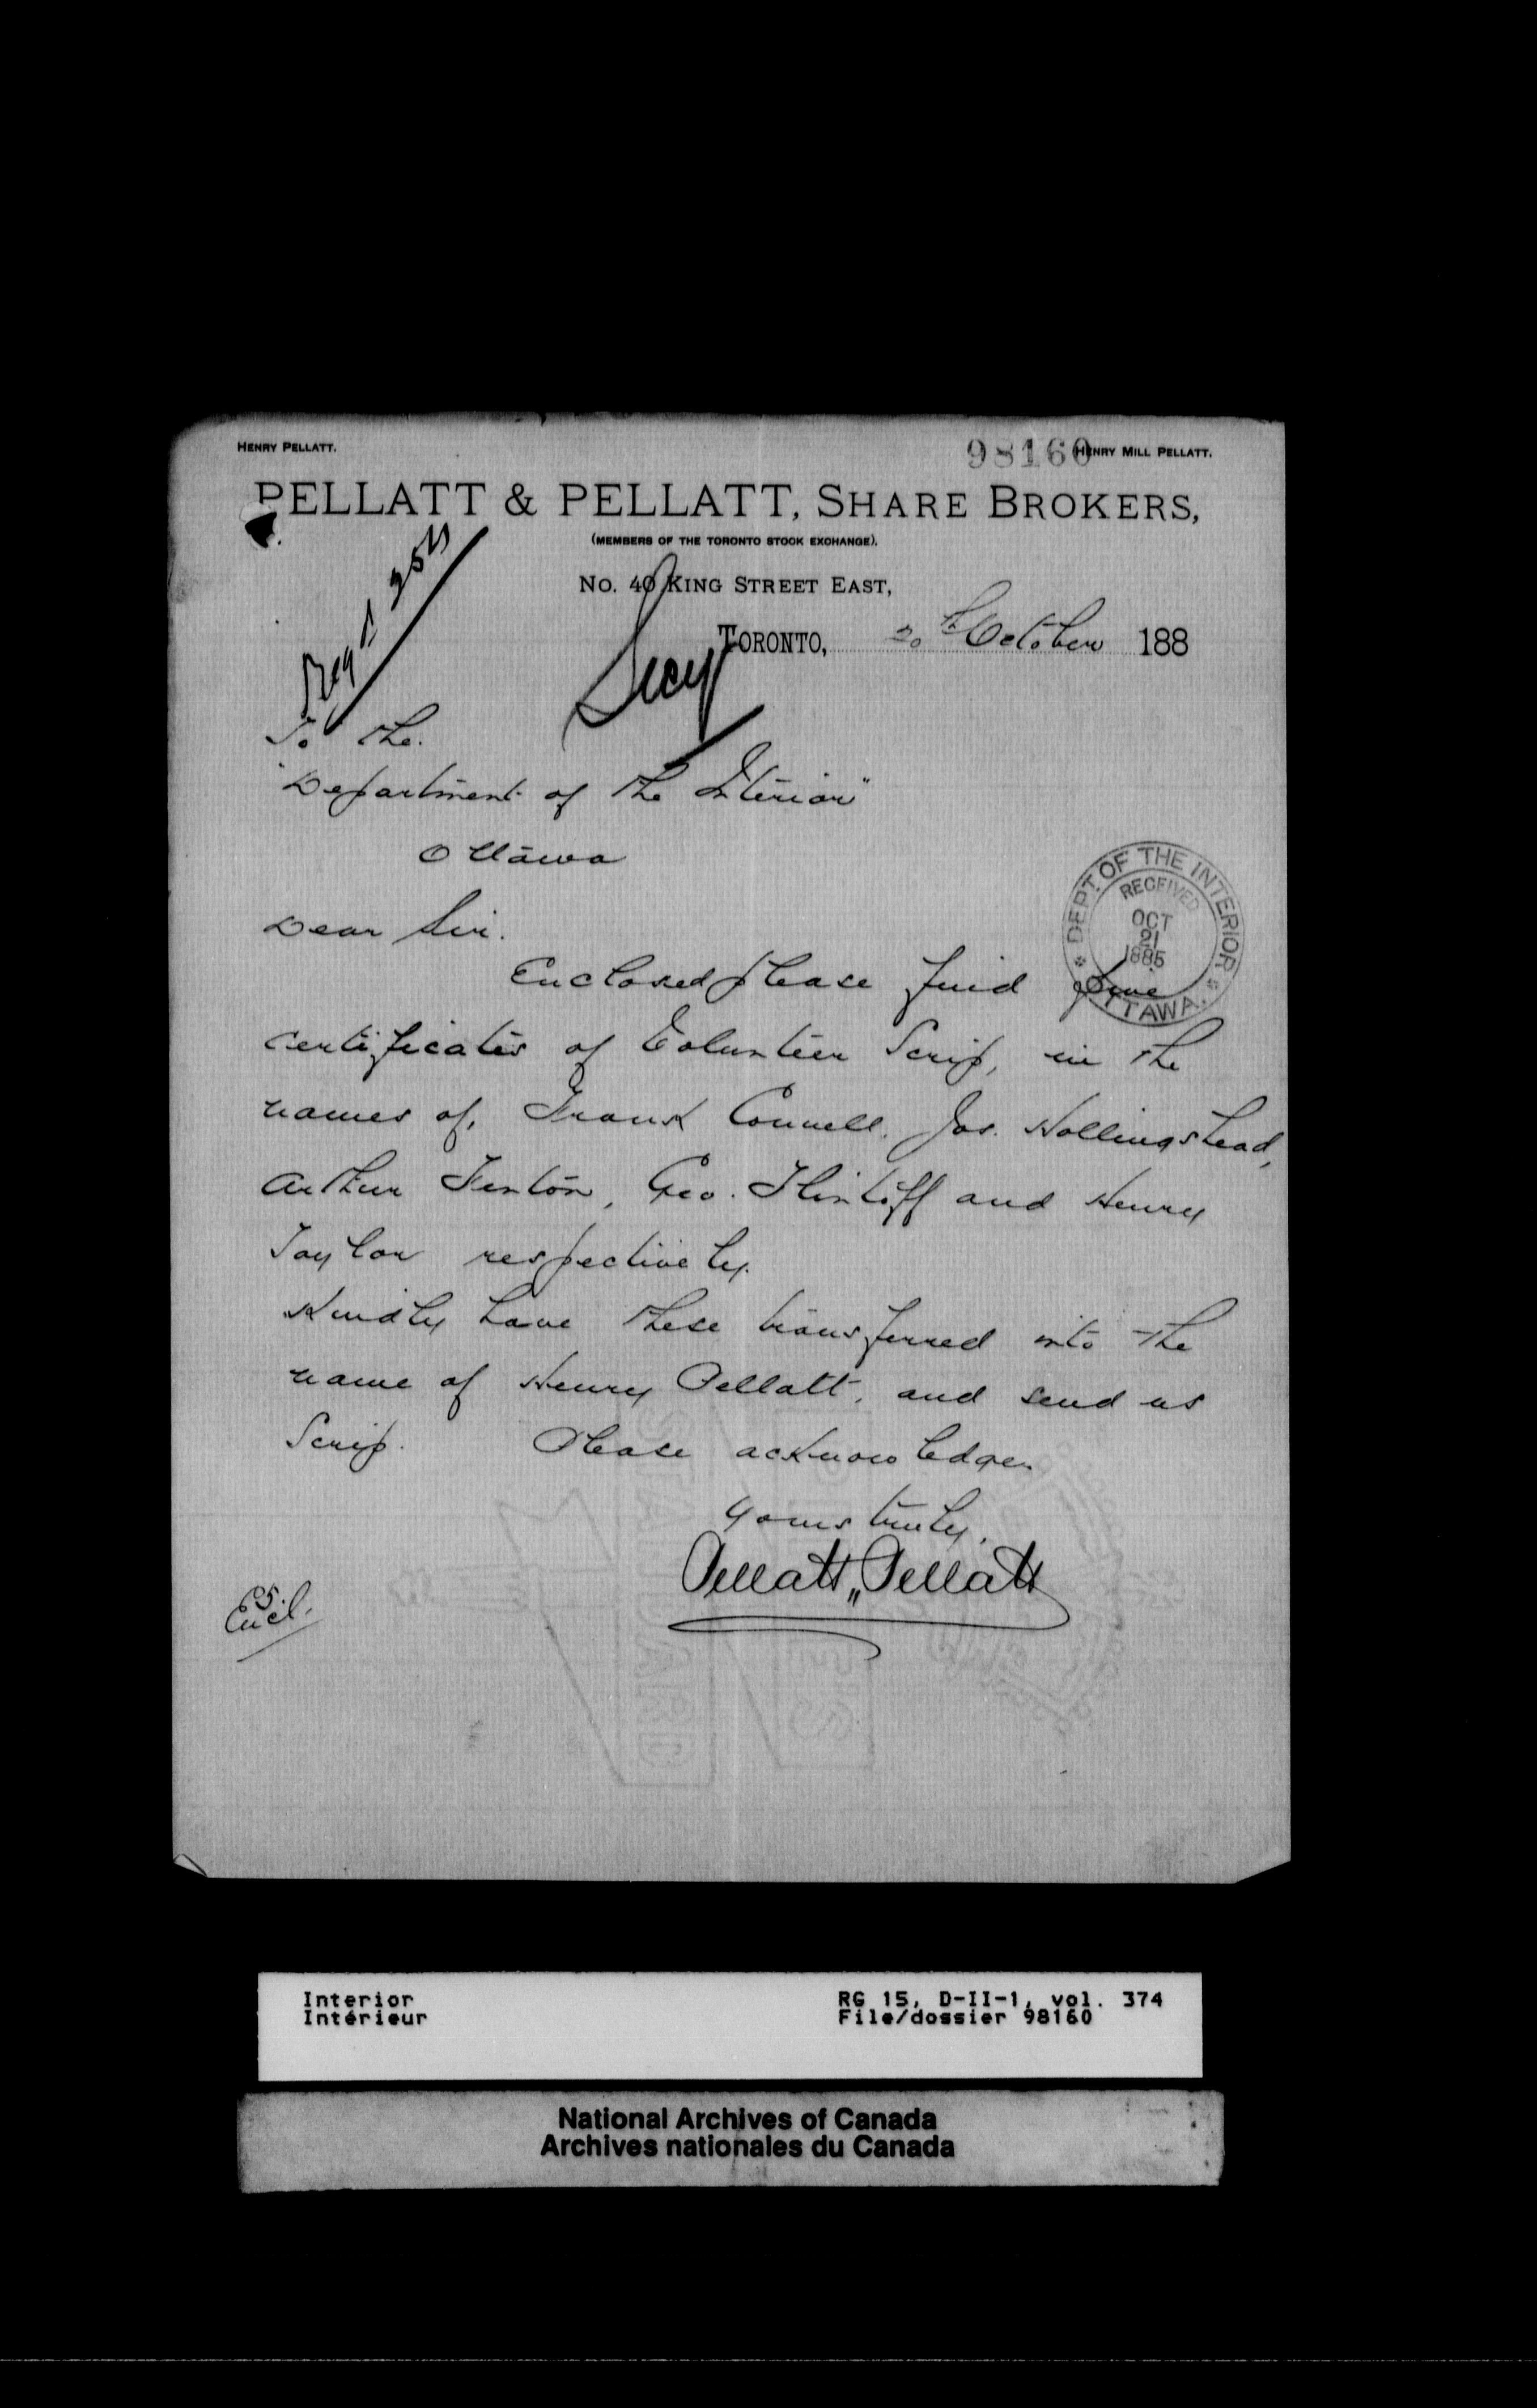 HENRY PELLATT.
98160
HENRY MILL PELLATT.
PELLATT & PELLATT, SHARE BROKERS,
(MEMBERS OF THE TORONTO STOCK EXCHANGE).
No. 40 KING STREET EAST,
TORONTO, 20th October 188
Regd
Secy
To the.
"Department of the Interior"
Ottawa
DEPT. OF THE INTERIOR
RECEIVED
OCT
21
1885
OTTAWA.
Dear Sir.
Enclosed please find five
certificates of Volunteer Scrip, in the
names of, Frank Connell, Jos. Hollingshead,
Arthur Fenton, Geo. Flintoff and Henry
Taylor respectively.
Kindly have these transferred into the
name of Henry Pellatt, and send us
Scrip. Please acknowledge.
Yours truly,
Pellatt „ Pellatt
5.
Encl.
PIRIE'S
STANDARD
Interior
Intérieur
RG 15, D-II-1, vol. 374
File/dossier 98160
National Archives of Canada
Archives nationales du Canada